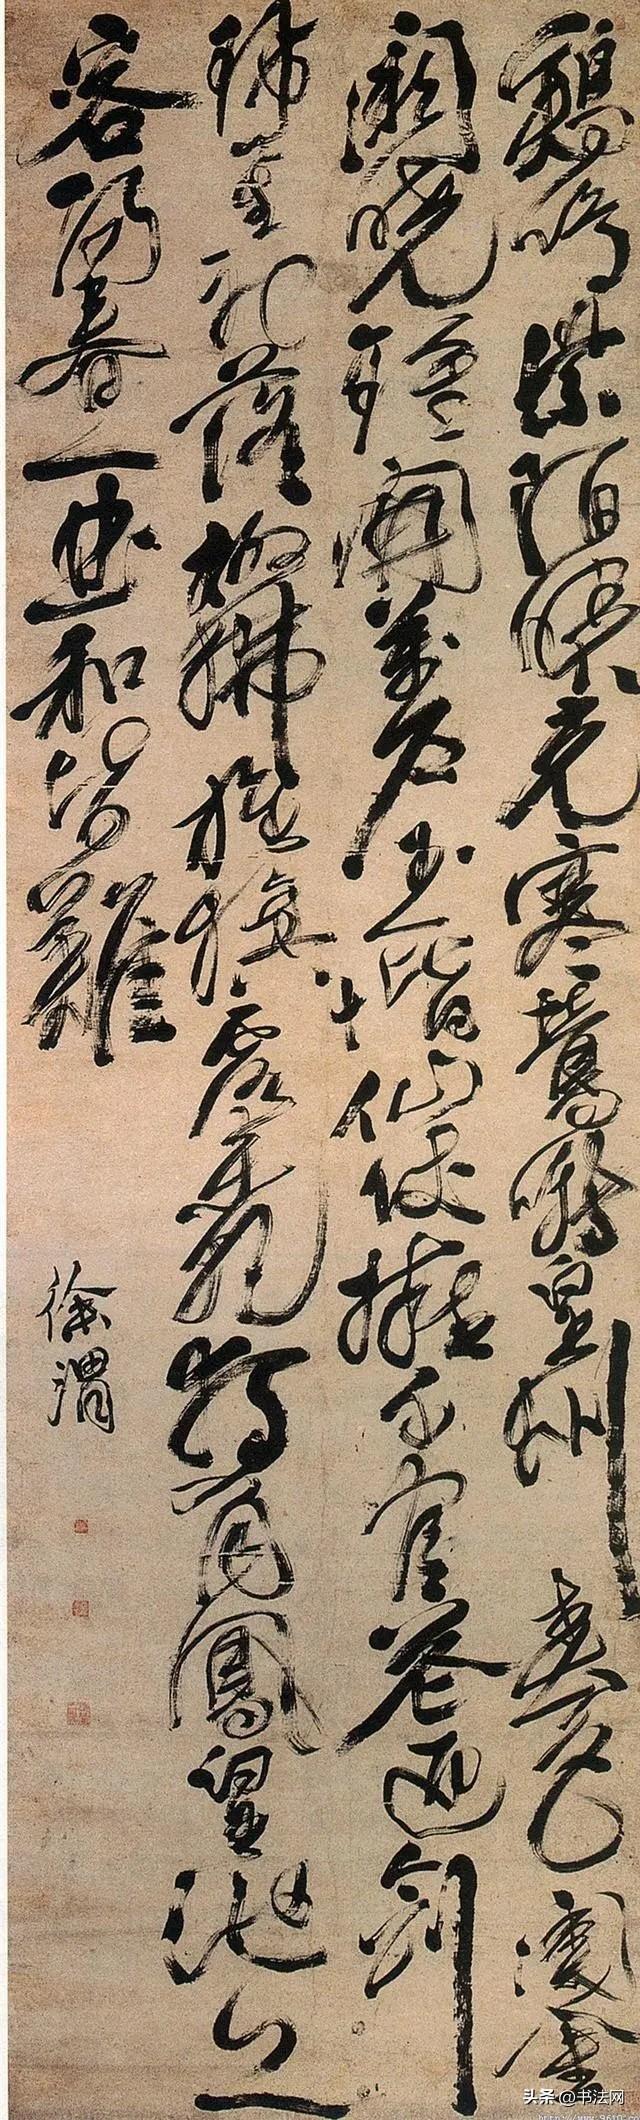 鷄鳴紫陌曙光寒鶯囀皇州春色闌金
闕曉鐘開萬戶玉階仙仗擁千官花迎劍
珮星初落柳拂旌旗露未乾獨有鳳凰池上
客陽春一曲和皆難
徐渭
头条 @书法网
http://www.9610